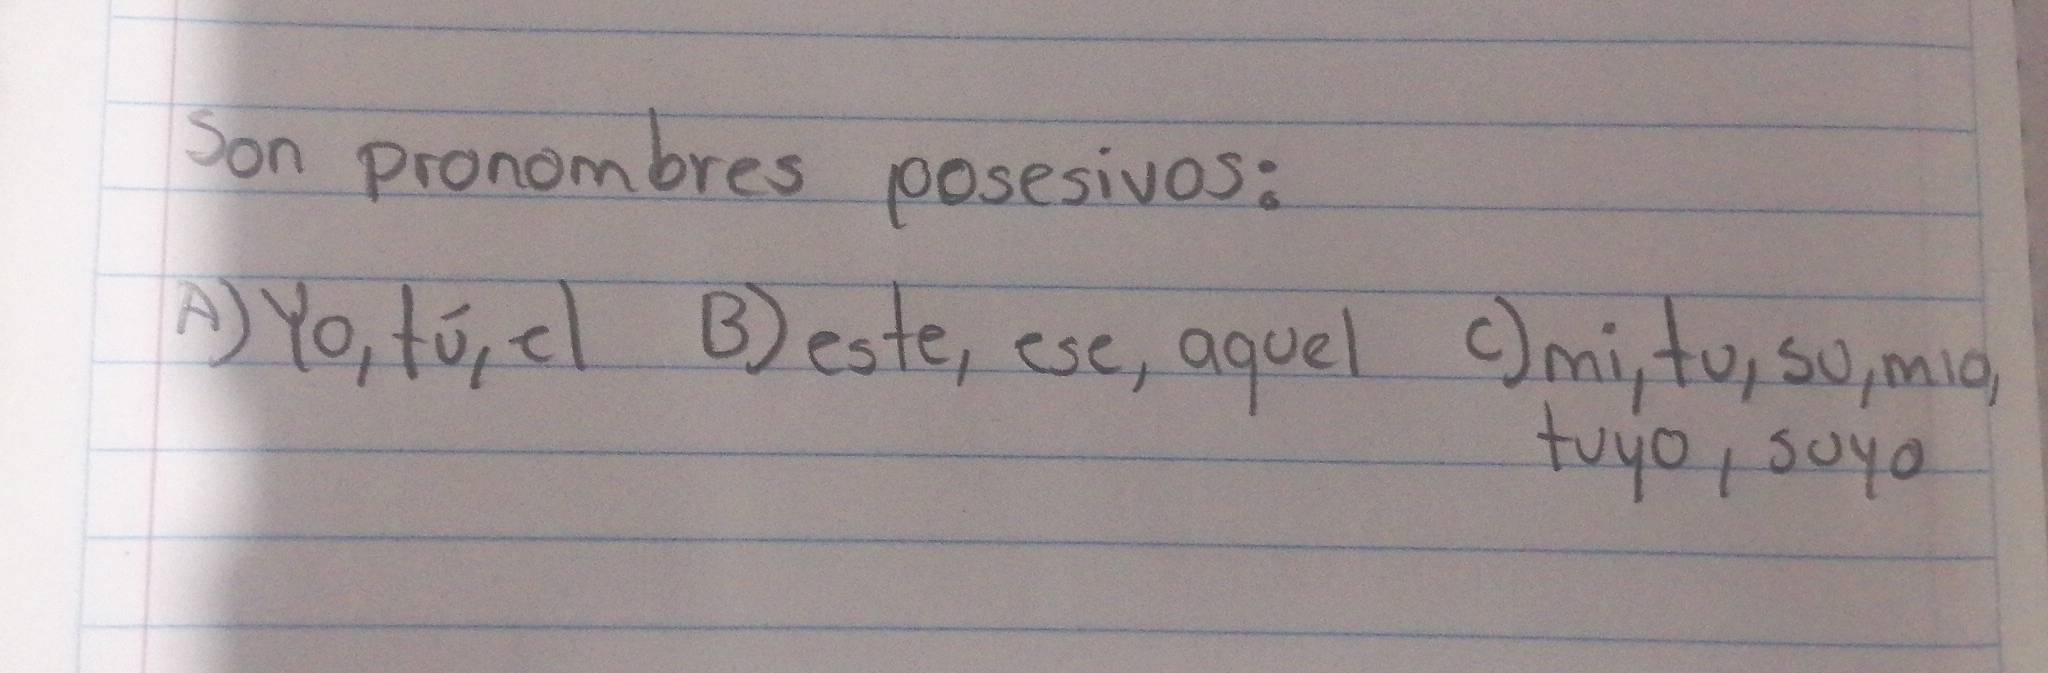 Son pronombres posesivos:
A) Yo, tú, el B) este, ese, aquel C) mi, tu, su, mio,
tuyo, suyo